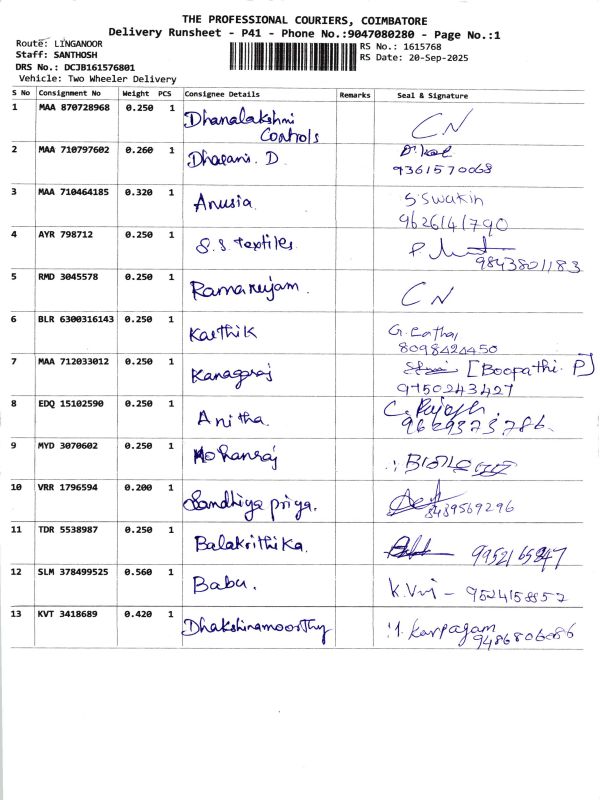 THE PROFESSIONAL COURIERS, COIMBATORE
Delivery Runsheet - P41 - Phone No.:9047080280 - Page No.:1
Route: LINGANOOR
Staff: SANTHOSH
DRS No.: DCJB161576801
Vehicle: Two Wheeler Delivery
RS No.: 1615768
RS Date: 20-Sep-2025
S No Consignment No Weight PCS Consignee Details Remarks Seal & Signature
1 MAA 870728968 0.250 1 Dhanalakshmi
Controls
CN
2 MAA 710797602 0.260 1 Dharani. D
9361570068
3 MAA 710464185 0.320 1 Anusia.
9626141790
4 AYR 798712 0.250 1 S.S Textiles
9843801183
5 RMD 3045578 0.250 1 Ramanujam.
CN
6 BLR 6300316143 0.250 1 Karthik
8098424450
7 MAA 712033012 0.250 1 Kanagaraj
[Boopathi. P]
9750243427
8 EDQ 15102590 0.250 1 Anitha.
9629373786.
9 MYD 3070602 0.250 1 Mohanraj
10 VRR 1796594 0.200 1 Sandhiya priya.
8439569296
11 TDR 5538987 0.250 1 Balakrithika.
12 SLM 378499525 0.560 1 Babu.
13 KVT 3418689 0.420 1 Dhakshinamoorthy
Karpagam